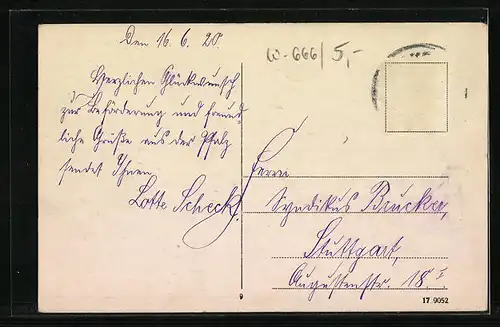 Den 16. 6. 20.
W-666/5,-
Herzlichen Glückwunsch
zur Beförderung und freund-
liche Grüße aus der Pfalz
sendet Ihnen
Lotte Scheck.
Herrn
Syndikus Brucker,
Stuttgart,
Augustenstr. 18 I.
9
17 9052